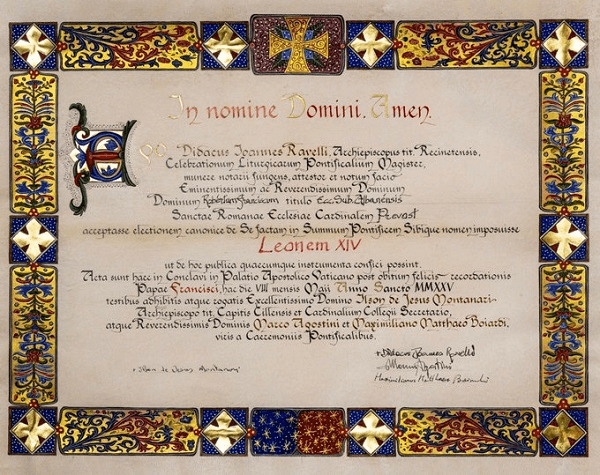 In nomine Domini. Amen.
Ego Didacus Ioannes Ravelli, Archiepiscopus tit. Recinetensis,
Celebrationum Liturgicarum Pontificalium Magister,
munere notarii fungens, attestor et notum facio
Eminentissimum ac Reverendissimum Dominum
Dominum Robertum Franciscum titulo Ecc. Sub. Albanensis
Sanctae Romanae Ecclesiae Cardinalem Prevost
acceptasse electionem canonice de Se factam in Summum Pontificem Sibique nomen imposuisse
Leonem XIV
ut de hoc publica quaecumque instrumenta confici possint.
Acta sunt haec in Conclavi in Palatio Apostolico Vaticano post obitum felicis recordationis
Papae Francisci, hac die VIII mensis Maii Anno Sancto MMXXV
testibus adhibitis atque rogatis Excellentissimo Domino Ilson de Jesus Montanari
Archiepiscopo tit. Capitis Cillensis et Cardinalium Collegii Secretario,
atque Reverendissimis Dominis Marco Agostini et Maximiliano Matthaeo Boiardi,
viris a Caeremoniis Pontificalibus.
+ Didacus Ioannes Ravelli
+ Ilson de Jesus Montanari
Marco Agostini
Maximilianus Matthaeus Boiardi